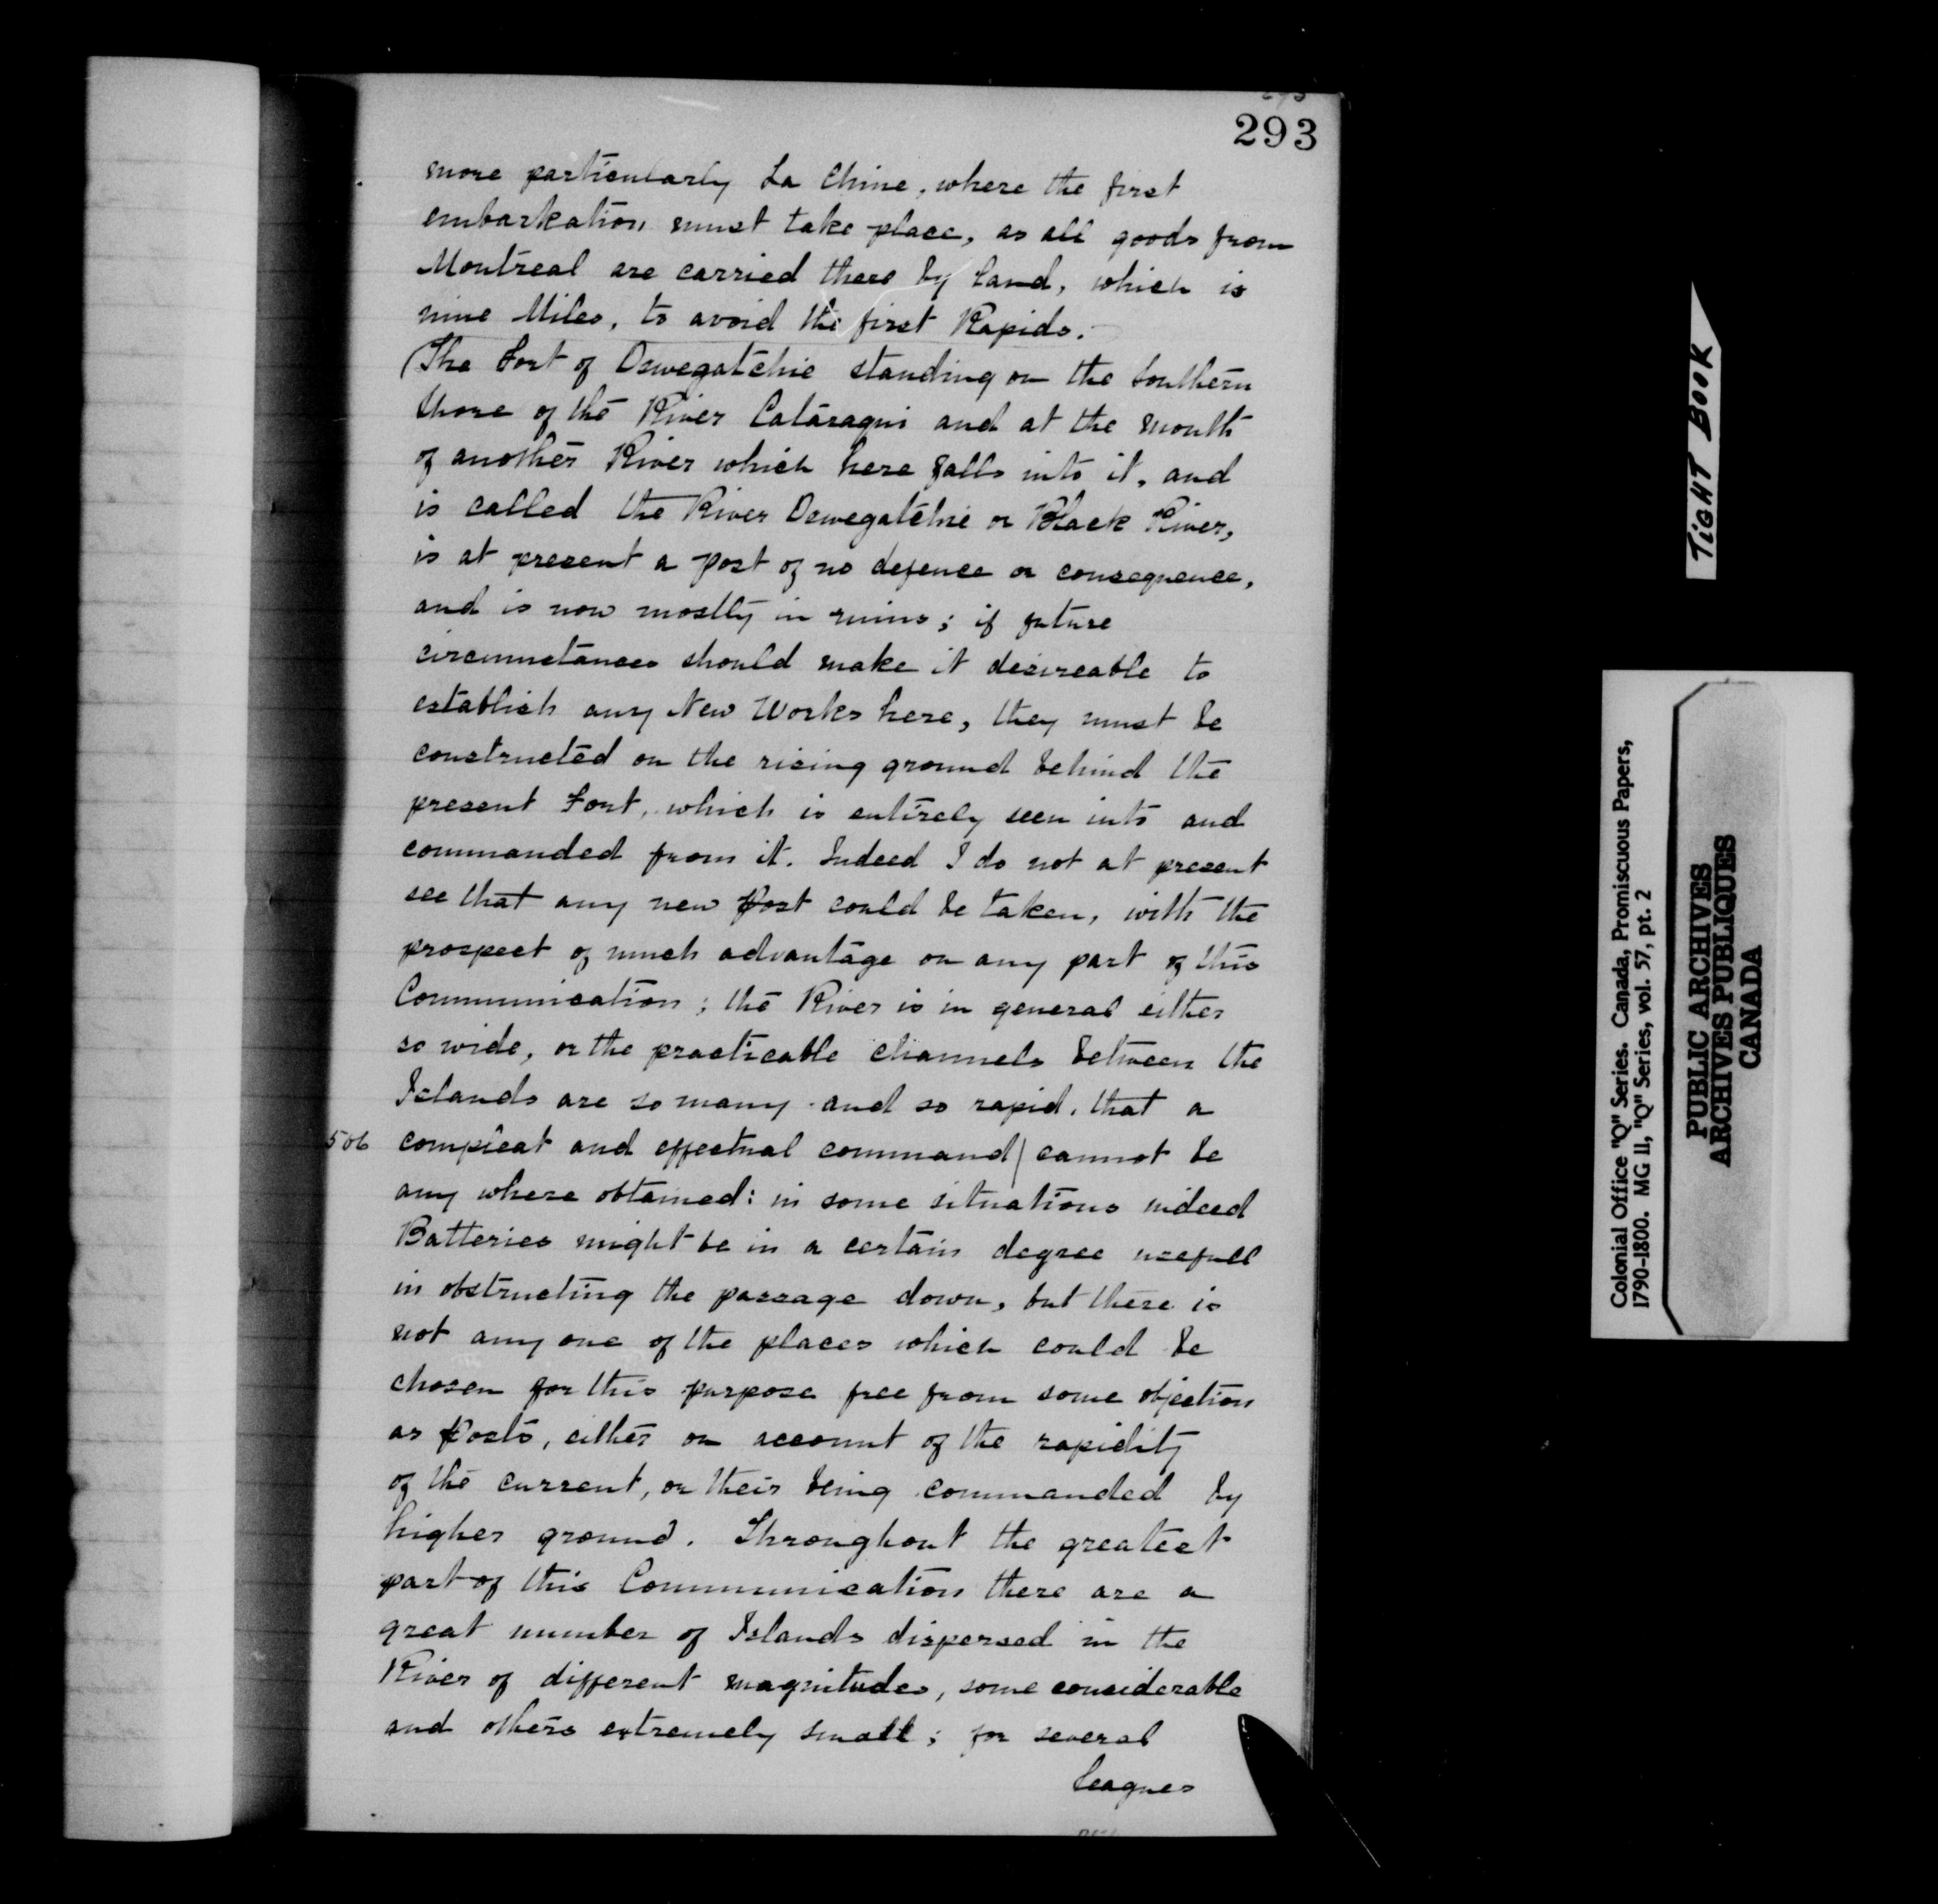 293
more particularly La Chine, where the first
embarkation must take place, as all goods from
Montreal are carried there by land, which is
nine Miles, to avoid the first Rapids.
(The Fort of Oswegatchie standing on the Southern
Shore of the River Cataraqui and at the mouth
of another River which here falls into it, and
is called the River Oswegatchie or Black River,
is at present a post of no defence or consequence,
and is now mostly in ruins; if future
circumstances should make it desireable to
establish any New Works here, they must be
constructed on the rising ground behind the
present Fort, which is entirely seen into and
commanded from it. Indeed I do not at present
see that any new Post could be taken, with the
prospect of much advantage on any part of this
Communication; the River is in general either
so wide, or the practicable channels between the
Islands are so many and so rapid, that a
506 compleat and effectual command/ cannot be
any where obtained: in some situations indeed
Batteries might be in a certain degree usefull
in obstructing the passage down, but there is
not any one of the places which could be
chosen for this purpose free from some objection
as Posts, either on account of the rapidity
of the current, or their being commanded by
higher ground. Throughout the greatest
part of this Communication there are a
great number of Islands dispersed in the
River of different magnitudes, some considerable
and others extremely small; for several
leagues
TIGHT BOOK
Colonial Office "Q" Series. Canada, Promiscuous Papers,
1790-1800. MG 11, "Q" Series, vol. 57, pt. 2
PUBLIC ARCHIVES
ARCHIVES PUBLIQUES
CANADA